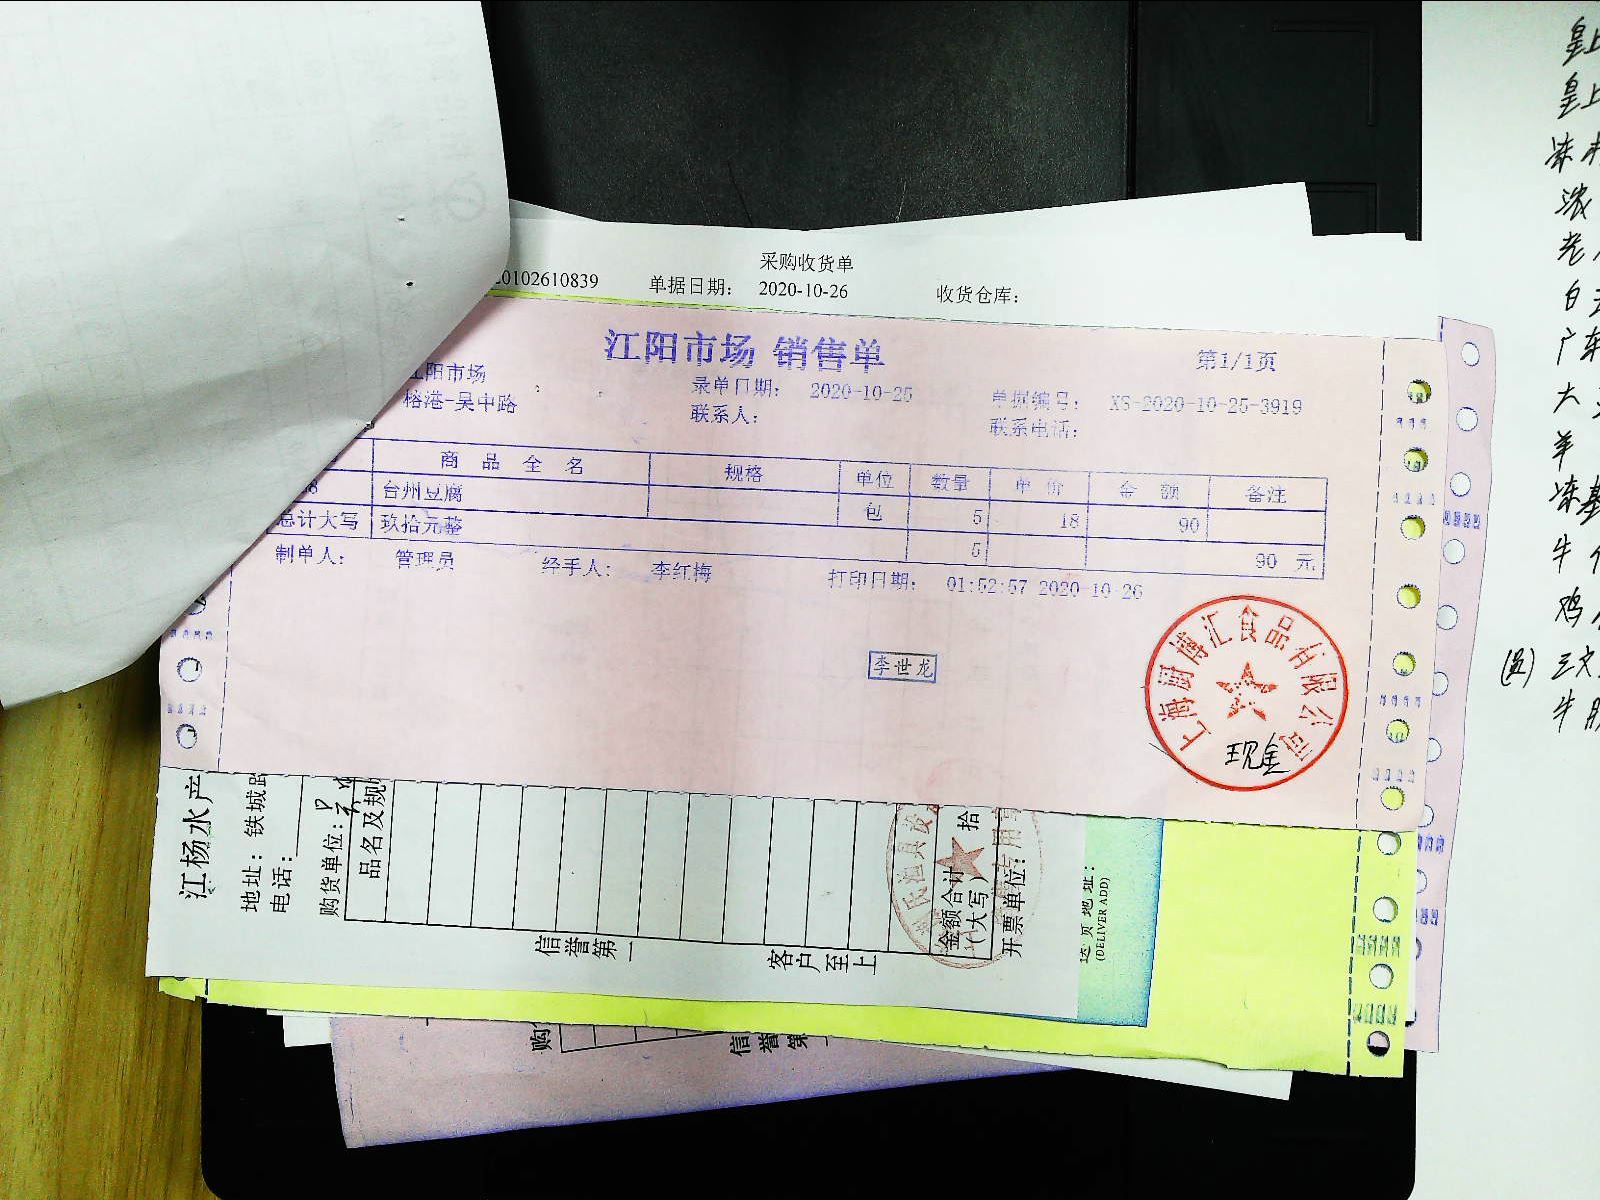 采购收货单
0102610839 单据日期： 2020-10-26 收货仓库：
江阳市场 销售单 第1/1页
江阳市场 录单日期： 2020-10-25 单据编号： XS-2020-10-25-3919
榕港-吴中路 联系人： 联系电话：
商品全名 规格 单位 数量 单价 金额 备注
台州豆腐 包 5 18 90
总计大写 玖拾元整 5 90 元
制单人： 管理员 经手人： 李红梅 打印日期： 01:52:57 2020-10-26
李世龙
上海厨博汇食品有限公司
现金
江杨水产
地址：铁城路
电话：
购货单位：
品名及规
金额合计
(大写) 拾
开票单位：
信誉第一
客户至上
地址：
(DELIVER ADD)
购
信誉第
皇上
皇上
冻
浓
老
白
广东
大
羊
冻
牛
鸡
三文
牛